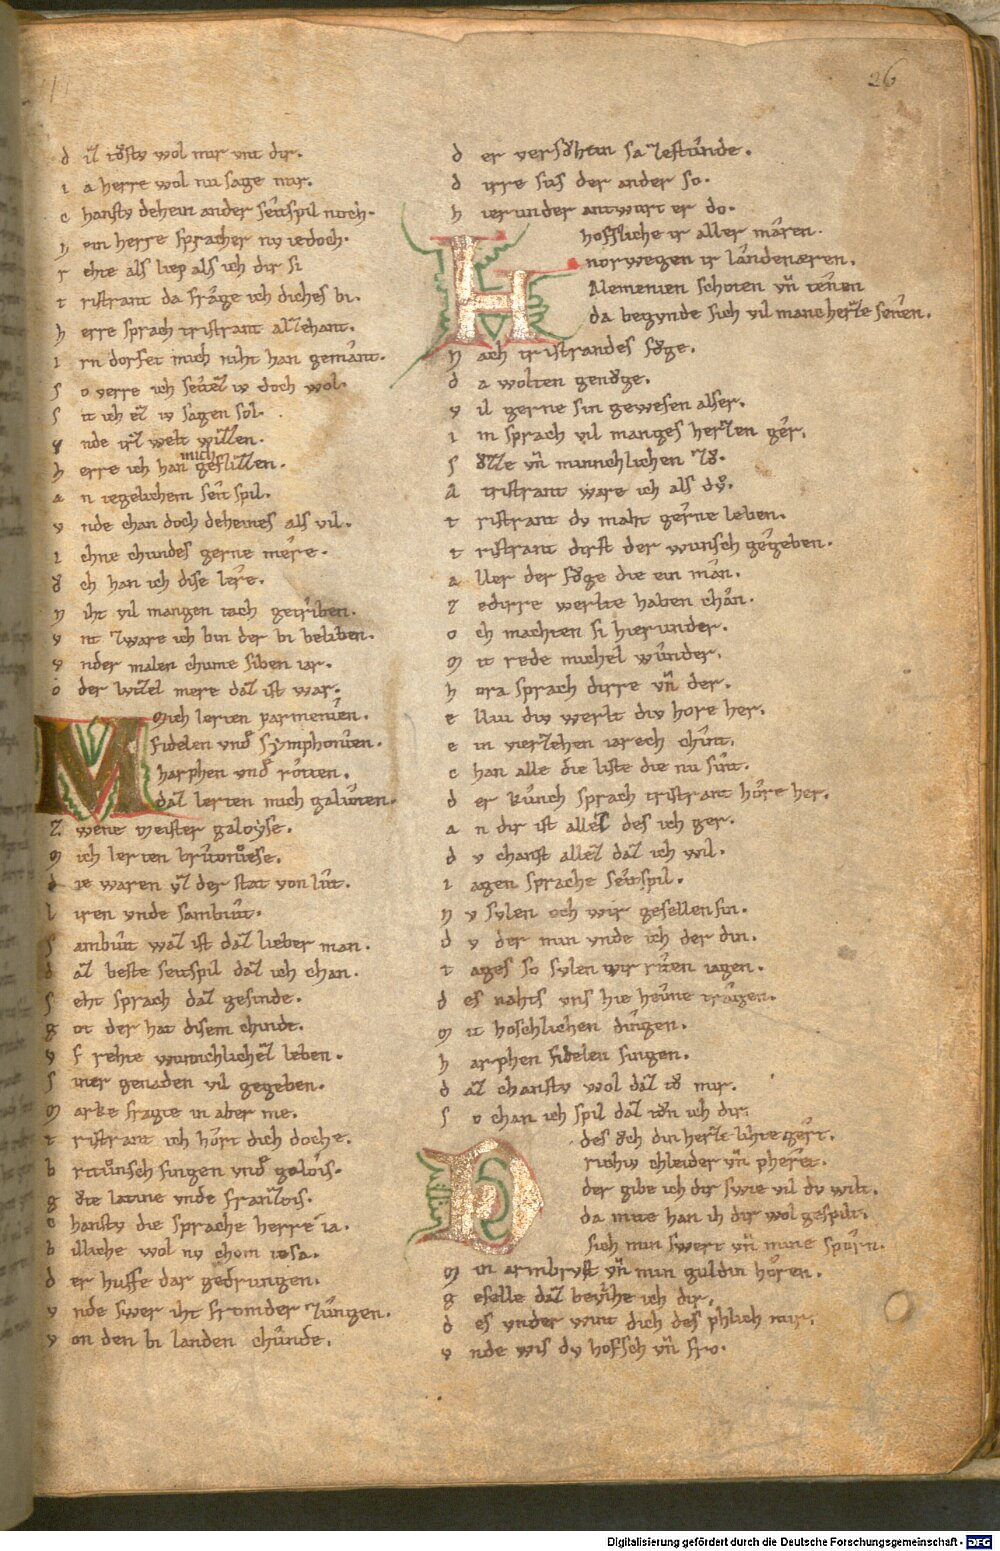 26
d iz tostv wol mir vnt dir.
i a herre wol nu sage mir.
c hanstv dehein ander seitspil noch.
n ein herre spracher nv iedoch.
r ehte als liep als ich dir si
t ristrant da frage ich diches bi.
h erre sprach tristrant alzehant.
i rn dorfet mich niht han gemant.
s o verre ich seitez iv doch wol.
s it ich ez iv sagen sol.
v nde irz welt wizzen.
h erre ich han mich geflizzen.
a n iegelichem seit spil.
v nde chan doch deheines als vil.
i chne chundes gerne mere.
o ch han ich dise lere.
n iht vil mangen tach getriben.
v nt zware ich bin der bi beliben.
v nder malen chume siben iar.
o der lvzel mere daz ist war.
Mich lerten parmenien.
fidelen vnd symphonien.
harphen vnd rotten.
daz lerten mich galioten.
z wene meister galoyse.
m ich lerten britonoise.
d ie waren vz der stat von lut.
l iren vnde sambiut.
s ambiut waz ist daz lieber man.
d az beste seitspil daz ich chan.
s eht sprach daz gesinde.
g ot der hat disem chinde.
v f rehte wunnchlichez leben.
s iner genaden vil gegeben.
m arke fragte in aber me.
t ristrant ich hort dich doch e.
b ritunsch singen vnd galois.
g ute latine vnde franzois.
c hanstv die sprache herre ia.
b illiche wol nv chom iesa.
d er huffe dar gedrungen.
v nde swer iht fromder zungen.
v on den bi landen chunde.
d er versohtin sa zestunde.
d irre sus der ander so.
h ier under antwurt er do.
H hoffliche ir aller mæren.
norwegen ir landenæren.
Alemenien schoten vn tenen
da begvnde sich vil manc herze senen.
n ach tristrandes foge.
d a wolten genoge.
v il gerne sin gewesen alser.
i m sprach vil manges herzen ger.
s ozze vn minnchlichen zo.
a tristrant ware ich als dv.
t ristrant dv maht gerne leben.
t ristrant dirst der wunsch gegeben.
a ller der foge die ein man.
z edirre werlte haben chan.
o ch machten si hier under.
m it rede michel wunder.
h ora sprach dirre vn der.
e lliu div werlt div hore her.
e in vierzehen iarech chint.
c han alle die liste die nu sint.
d er kunch sprach tristrant hore her.
a n dir ist allez des ich ger.
d v chanst allez daz ich wil.
i agen sprache seitspil.
n v svlen och wir gesellen sin.
d v der min vnde ich der din.
t ages so svlen wir riten iagen.
d es nahts vns hie heime tragen.
m it hoschlichen dingen.
h arphen fidelen singen.
d az chanstv wol daz to mir.
s o chan ich spil daz ton ich dir.
D des och din herze lihte gert.
richiv chleider vn phert.
der gibe ich dir swie vil dv wilt.
da mite han ih dir wol gespilt.
sich min swert vn mine sporn.
m in armbrvst vn min guldin horen.
g eselle daz bevilhe ich dir.
d es vnder wint dich des phlich mir.
v nde wis dv hofsch vn fro.
Digitalisierung gefördert durch die Deutsche Forschungsgemeinschaft - DFG